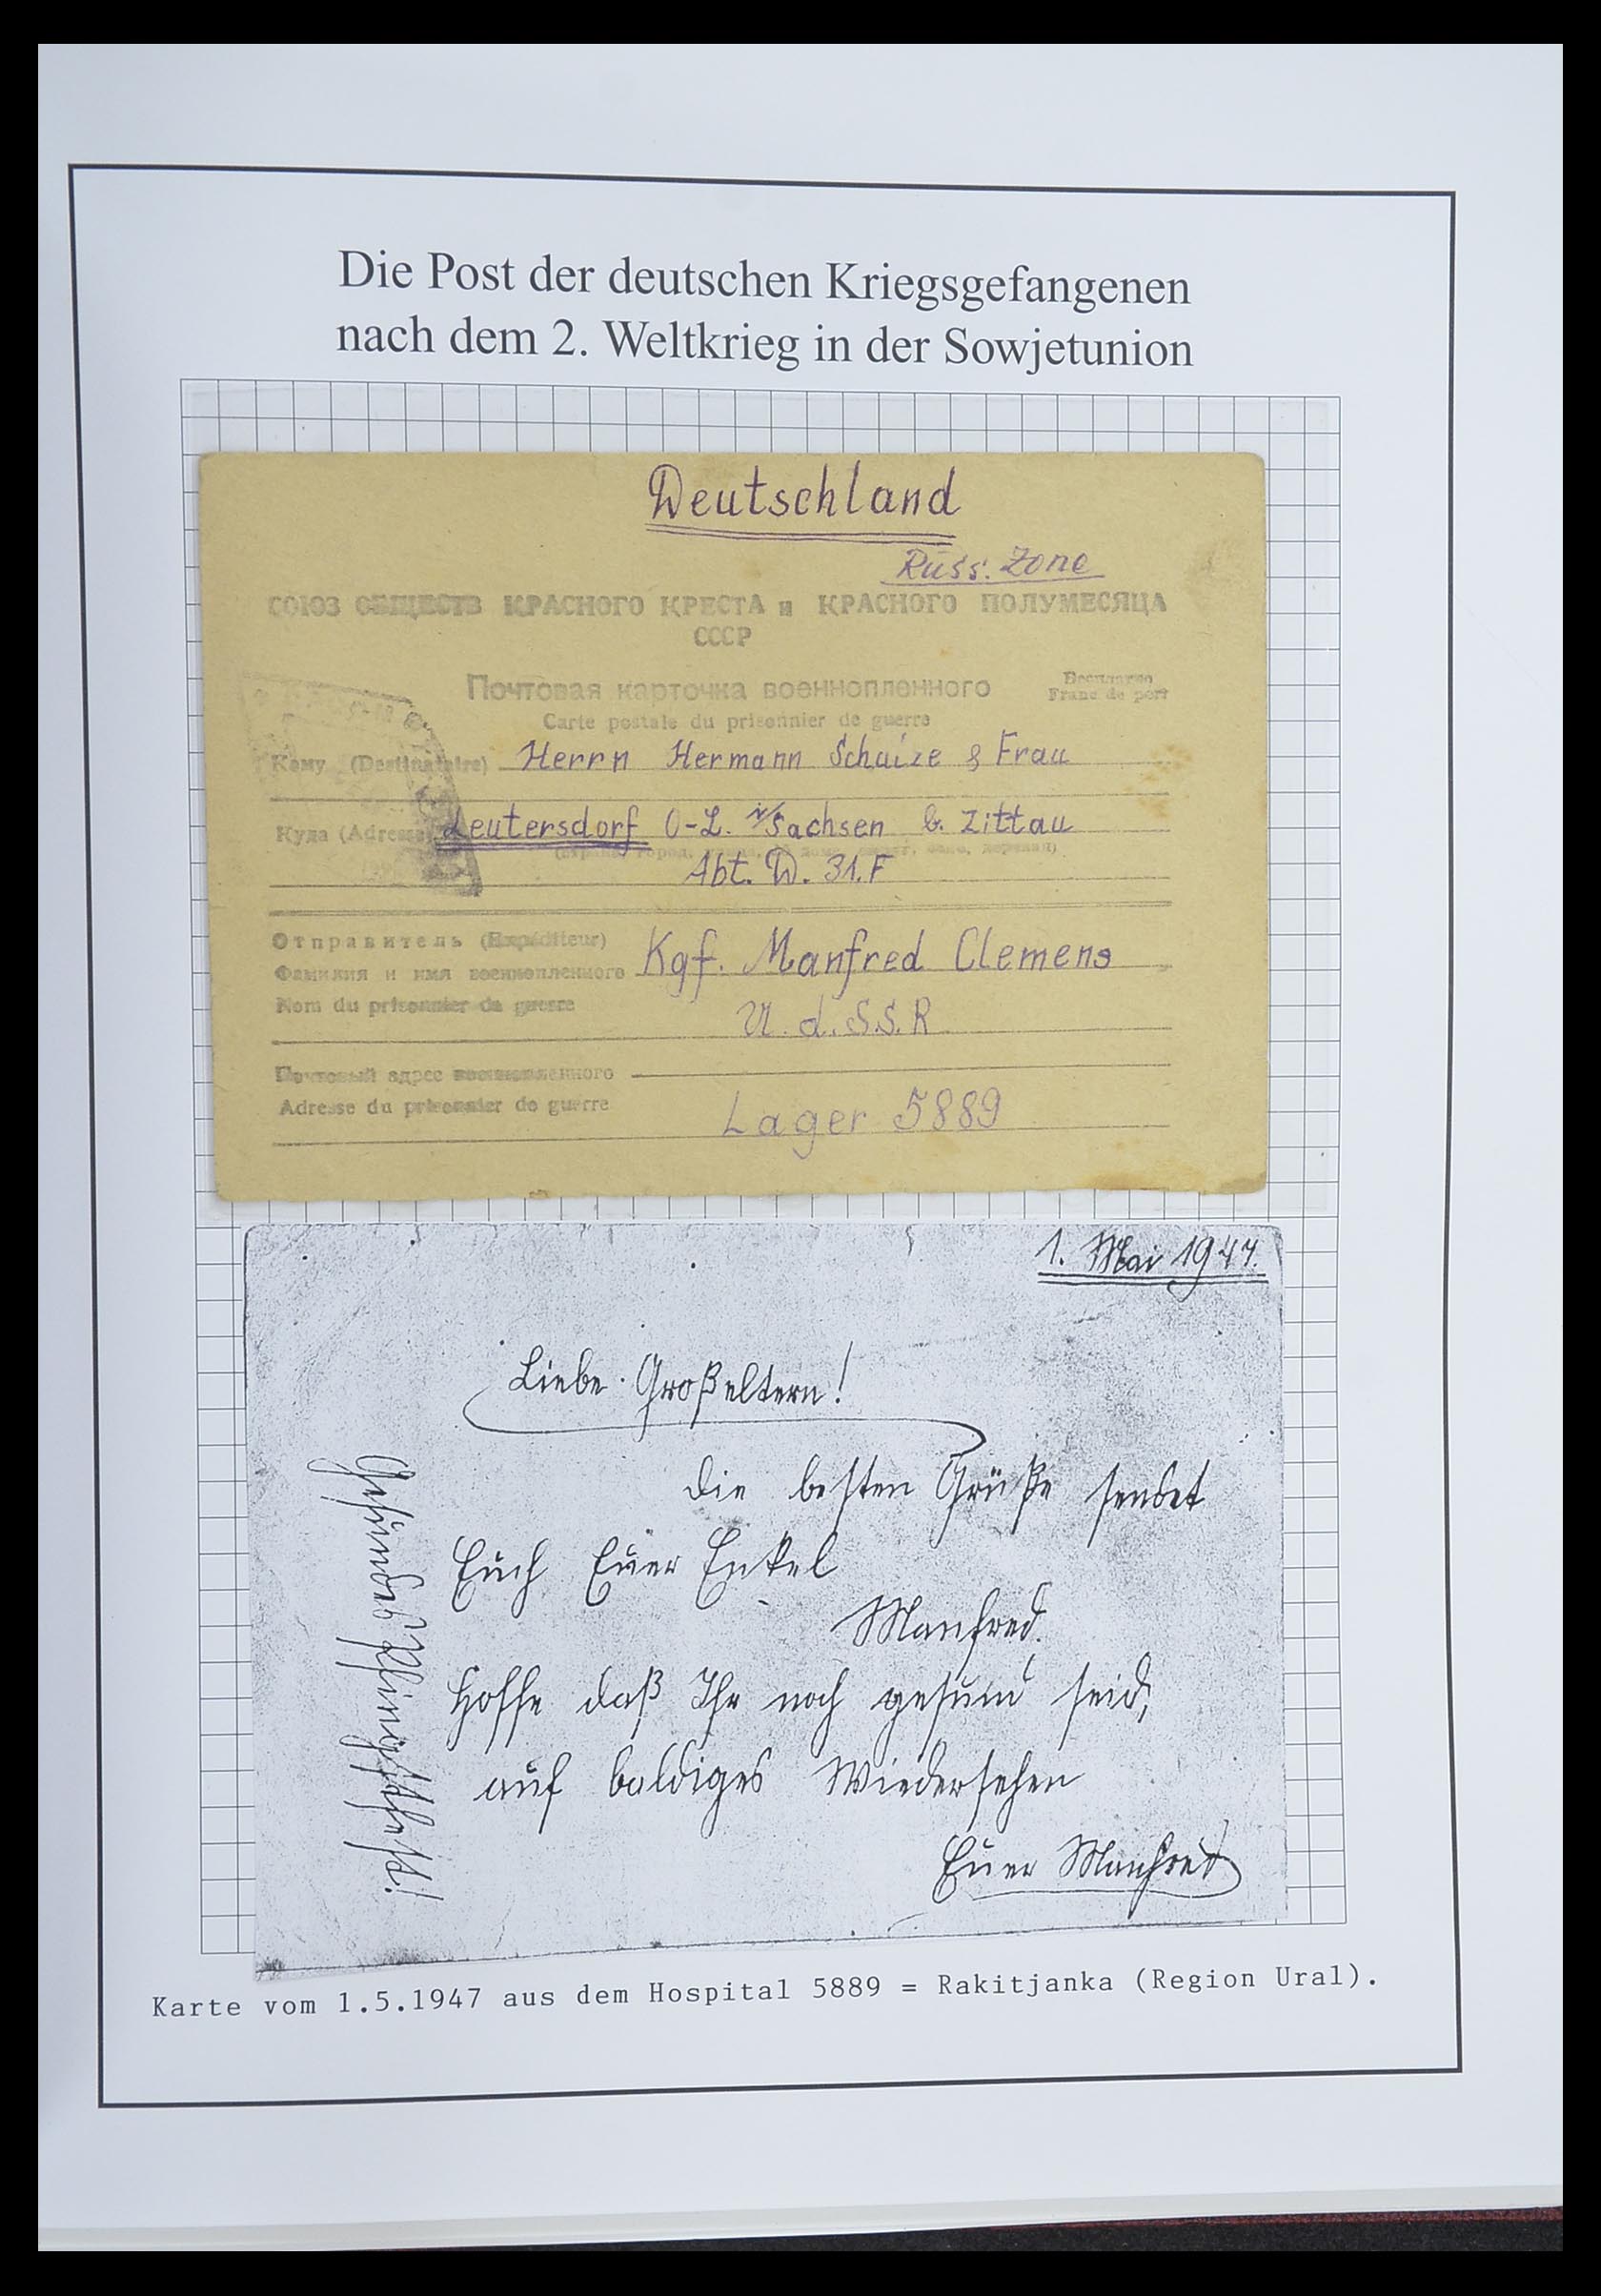 Die Post der deutschen Kriegsgefangenen
nach dem 2. Weltkrieg in der Sowjetunion
Deutschland
Russ. Zone
СОЮЗ ОБЩЕСТВ КРАСНОГО КРЕСТА и КРАСНОГО ПОЛУМЕСЯЦА
СССР
Почтовая карточка военнопленного
Бесплатно
Franc de port
Carte postale du prisonnier de guerre
Кому (Destinataire) Herrn Hermann & Frau
Куда (Adresse) Leutersdorf O-L. Sachsen b. Zittau
Abt. W. 31.F
Отправитель (Expéditeur)
Фамилия и имя военнопленного Kgf. Manfred Clemens
Nom du prisonnier de guerre
U.d.S.S.R
Почтовый адрес военнопленного
Adresse du prisonnier de guerre
Lager 5889
1. Mai 1947.
Liebe Großeltern!
die besten Grüße sendet
Euch Euer Enkel
Manfred.
Hoffe daß Ihr noch gesund seid,
auf baldiges Wiedersehen
Euer Manfred
Gesundes Pfingstfest!
Karte vom 1.5.1947 aus dem Hospital 5889 = Rakitjanka (Region Ural).